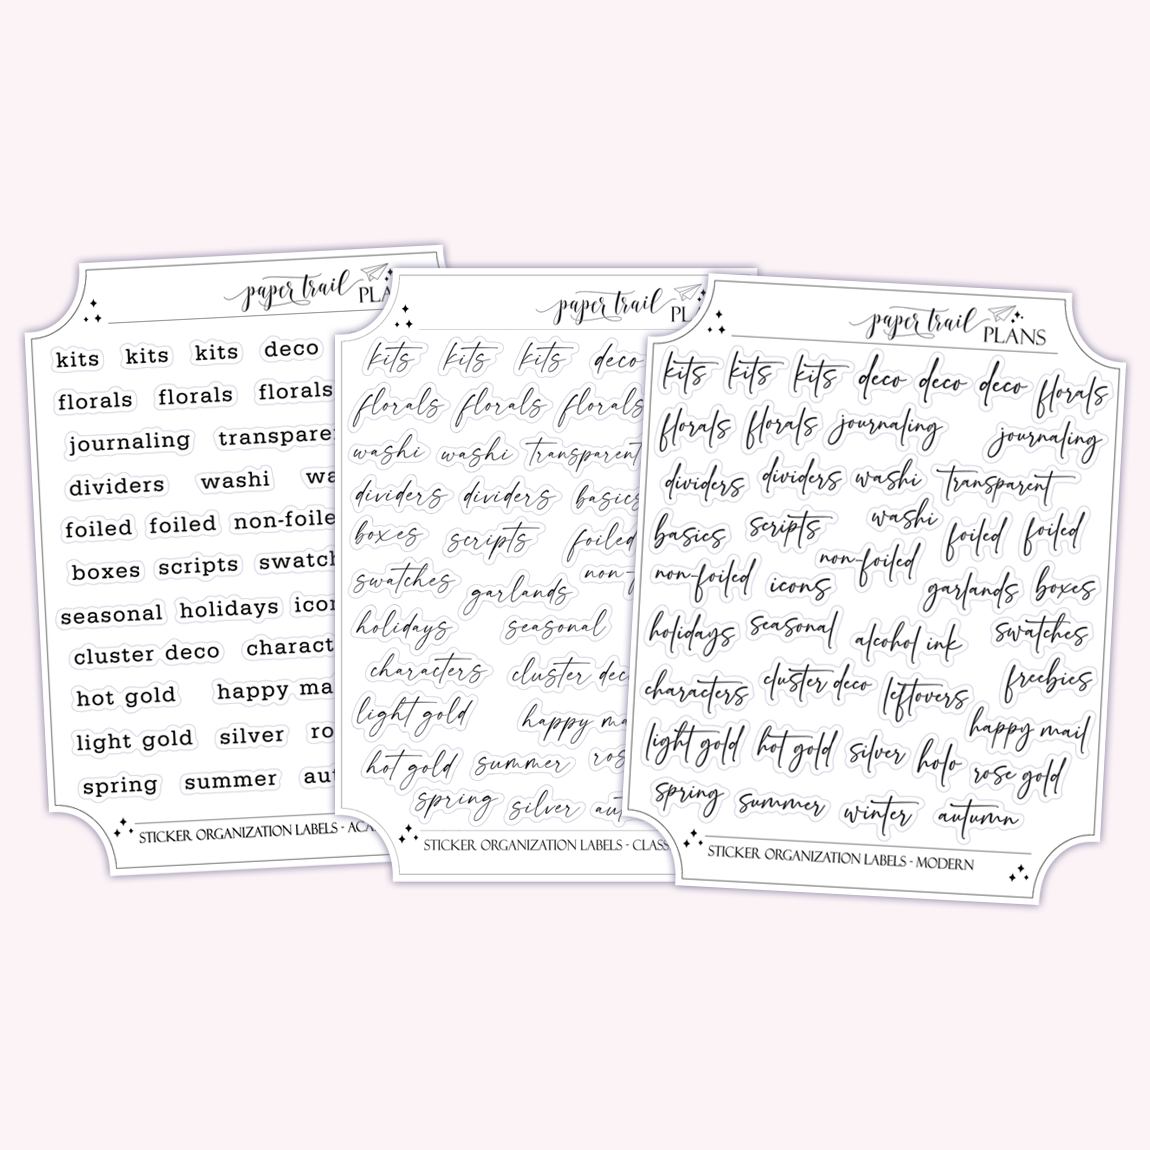 paper trail
PLA
kits kits kits deco
florals florals florals
journaling transparen
dividers washi wa
foiled foiled non-foile
boxes scripts swatch
seasonal holidays icon
cluster deco charact
hot gold happy ma
light gold silver ro
spring summer aut
STICKER ORGANIZATION LABELS - ACA
paper trail
PL
kits kits kits deco
florals florals florals
washi washi transparent
dividers dividers basics
boxes scripts foiled
swatches garlands non-
holidays seasonal
characters cluster deco
light gold happy ma
hot gold summer ros
spring silver aut
STICKER ORGANIZATION LABELS - CLASS
paper trail
PLANS
kits kits kits deco deco deco florals
florals florals journaling journaling
dividers dividers washi transparent
basics scripts washi foiled foiled
non-foiled icons non-foiled garlands boxes
holidays seasonal alcohol ink swatches
characters cluster deco leftovers freebies
happy mail
light gold hot gold silver holo rose gold
spring summer winter autumn
STICKER ORGANIZATION LABELS - MODERN